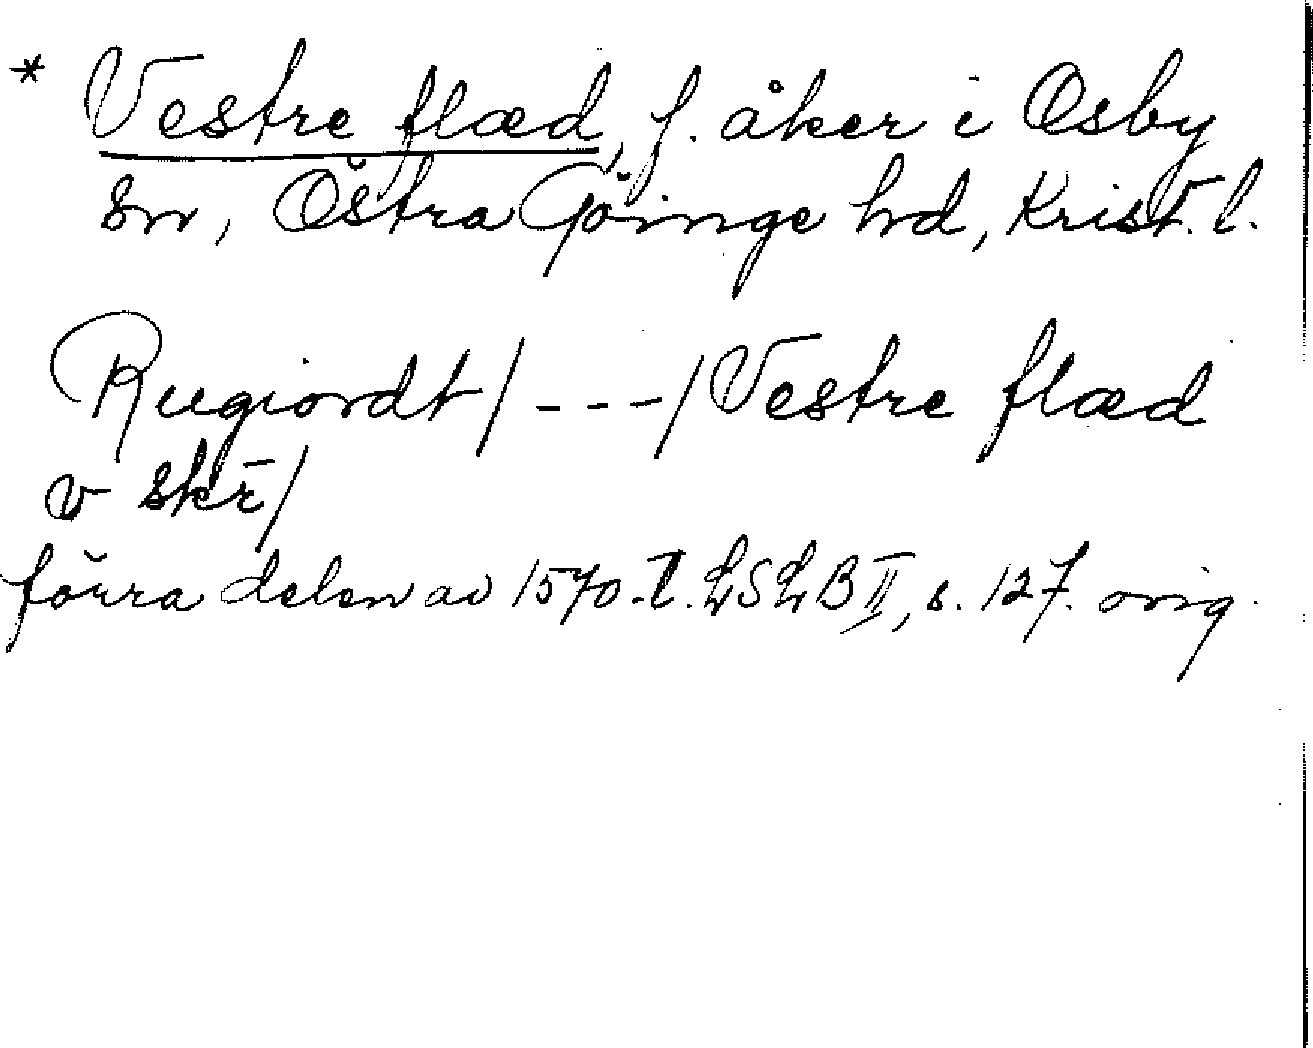 * Vestre flæd, f. åker i Osby
sn, Östra Göinge hd, Krist. l.
Rugiordt / - - - / Vestre flæd
v skr̄ /
förra delen av 1570-t. LSLB II, s. 127. orig.